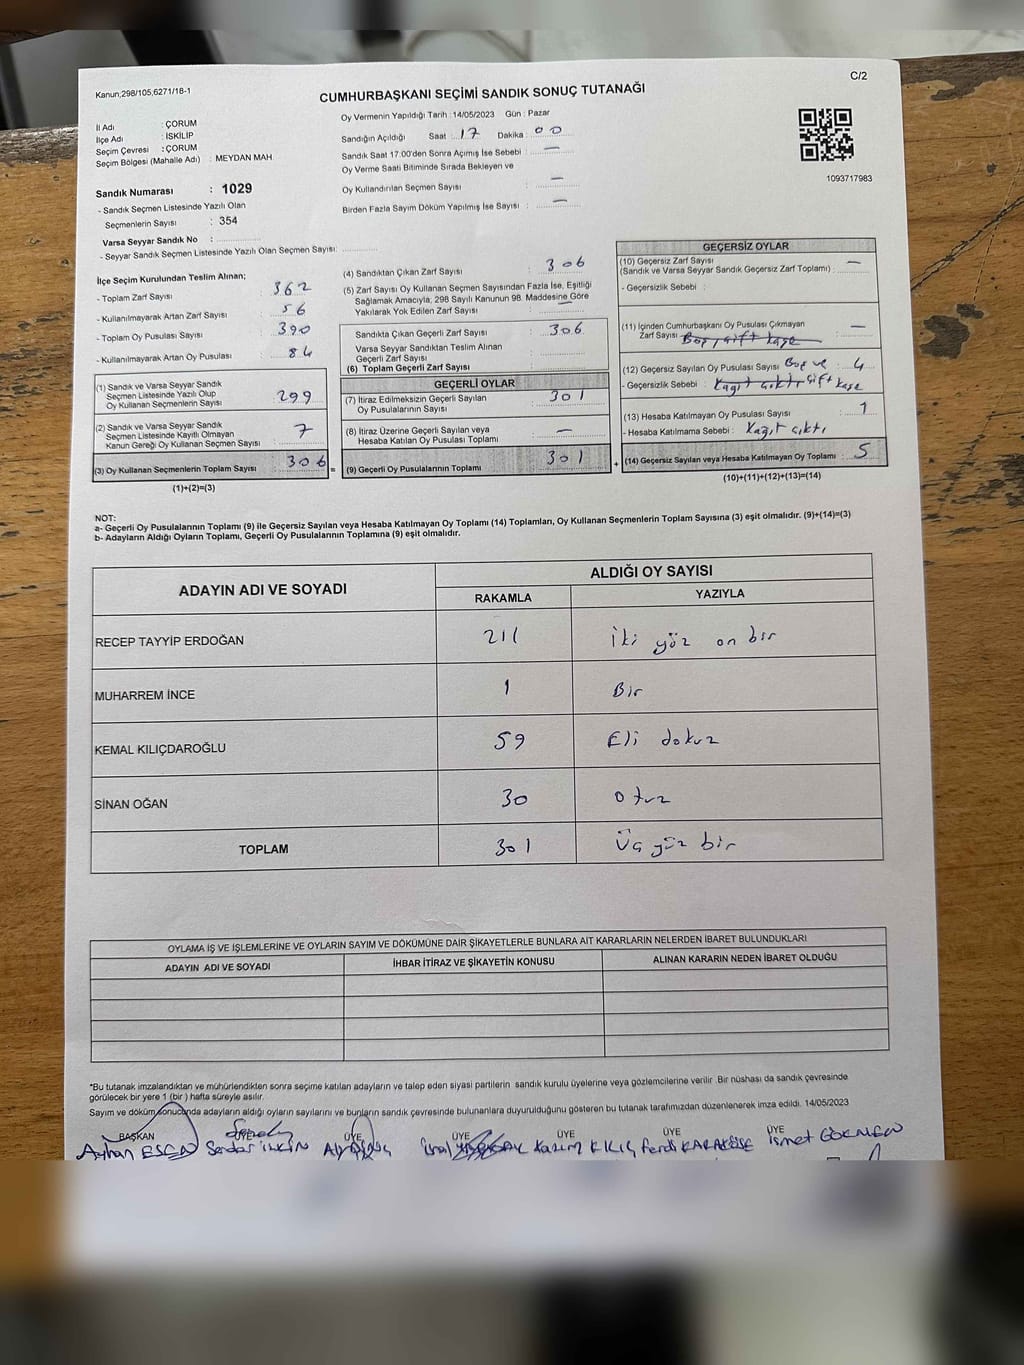 Kanun,298/105,6271/18-1
C/2
CUMHURBAŞKANI SEÇİMİ SANDIK SONUÇ TUTANAĞI
İl Adı : ÇORUM
İlçe Adı : İSKİLİP
Seçim Çevresi : ÇORUM
Seçim Bölgesi (Mahalle Adı) : MEYDAN MAH
Sandık Numarası : 1029
- Sandık Seçmen Listesinde Yazılı Olan
Seçmenlerin Sayısı : 354
Varsa Seyyar Sandık No :
- Seyyar Sandık Seçmen Listesinde Yazılı Olan Seçmen Sayısı:
Oy Vermenin Yapıldığı Tarih : 14/05/2023 Gün : Pazar
Sandığın Açıldığı Saat : 17 Dakika : 00
Sandık Saat 17:00'den Sonra Açımış İse Sebebi : —
Oy Verme Saati Bitiminde Sırada Bekleyen ve
Oy Kullandırılan Seçmen Sayısı : —
Birden Fazla Sayım Döküm Yapılmış İse Sayısı : —
1093717983
İlçe Seçim Kurulundan Teslim Alınan;
- Toplam Zarf Sayısı : 362
- Kullanılmayarak Artan Zarf Sayısı : 56
- Toplam Oy Pusulası Sayısı : 390
- Kullanılmayarak Artan Oy Pusulası : 84
(1) Sandık ve Varsa Seyyar Sandık
Seçmen Listesinde Yazılı Olup
Oy Kullanan Seçmenlerin Sayısı : 299
(2) Sandık ve Varsa Seyyar Sandık
Seçmen Listesinde Kayıtlı Olmayan
Kanun Gereği Oy Kullanan Seçmen Sayısı : 7
(3) Oy Kullanan Seçmenlerin Toplam Sayısı : 306 =
(1)+(2)=(3)
(4) Sandıktan Çıkan Zarf Sayısı : 306
(5) Zarf Sayısı Oy Kullanan Seçmen Sayısından Fazla İse, Eşitliği
Sağlamak Amacıyla; 298 Sayılı Kanunun 98. Maddesine Göre
Yakılarak Yok Edilen Zarf Sayısı : —
Sandıkta Çıkan Geçerli Zarf Sayısı : 306
Varsa Seyyar Sandıktan Teslim Alınan
Geçerli Zarf Sayısı :
(6) Toplam Geçerli Zarf Sayısı
GEÇERLİ OYLAR
(7) İtiraz Edilmeksizin Geçerli Sayılan
Oy Pusulalarının Sayısı : 301
(8) İtiraz Üzerine Geçerli Sayılan veya
Hesaba Katılan Oy Pusulası Toplamı : —
(9) Geçerli Oy Pusulalarının Toplamı : 301 +
GEÇERSİZ OYLAR
(10) Geçersiz Zarf Sayısı
(Sandık ve Varsa Seyyar Sandık Geçersiz Zarf Toplamı) : —
- Geçersizlik Sebebi :
(11) İçinden Cumhurbaşkanı Oy Pusulası Çıkmayan
Zarf Sayısı : —
Boş, çift kaşe
(12) Geçersiz Sayılan Oy Pusulası Sayısı Boş ve : 4
- Geçersizlik Sebebi : Kağıt çıktı çift kaşe
(13) Hesaba Katılmayan Oy Pusulası Sayısı : 1
- Hesaba Katılmama Sebebi : Kağıt çıktı
(14) Geçersiz Sayılan veya Hesaba Katılmayan Oy Toplamı : 5
(10)+(11)+(12)+(13)=(14)
NOT:
a- Geçerli Oy Pusulalarının Toplamı (9) ile Geçersiz Sayılan veya Hesaba Katılmayan Oy Toplamı (14) Toplamları, Oy Kullanan Seçmenlerin Toplam Sayısına (3) eşit olmalıdır. (9)+(14)=(3)
b- Adayların Aldığı Oyların Toplamı, Geçerli Oy Pusulalarının Toplamına (9) eşit olmalıdır.
ADAYIN ADI VE SOYADI
ALDIĞI OY SAYISI
RAKAMLA YAZIYLA
RECEP TAYYİP ERDOĞAN 211 İki yöz on bir
MUHARREM İNCE 1 Bir
KEMAL KILIÇDAROĞLU 59 Eli dokuz
SİNAN OĞAN 30 otuz
TOPLAM 301 Üç yüz bir
OYLAMA İŞ VE İŞLEMLERİNE VE OYLARIN SAYIM VE DÖKÜMÜNE DAİR ŞİKAYETLERLE BUNLARA AİT KARARLARIN NELERDEN İBARET BULUNDUKLARI
ADAYIN ADI VE SOYADI İHBAR İTİRAZ VE ŞİKAYETİN KONUSU ALINAN KARARIN NEDEN İBARET OLDUĞU
*Bu tutanak imzalandıktan ve mühürlendikten sonra seçime katılan adayların ve talep eden siyasi partilerin sandık kurulu üyelerine veya gözlemcilerine verilir .Bir nüshası da sandık çevresinde
görülecek bir yere 1 (bir ) hafta süreyle asılır.
Sayım ve döküm sonucunda adayların aldığı oyların sayılarını ve bunların sandık çevresinde bulunanlara duyurulduğunu gösteren bu tutanak tarafımızdan düzenlenerek imza edildi. 14/05/2023
BAŞKAN ÜYE ÜYE ÜYE ÜYE ÜYE
Ayhan ESEN Serdar Kazım KILIÇ Ferdi KARAKÖSE İsmet GÖKMEN